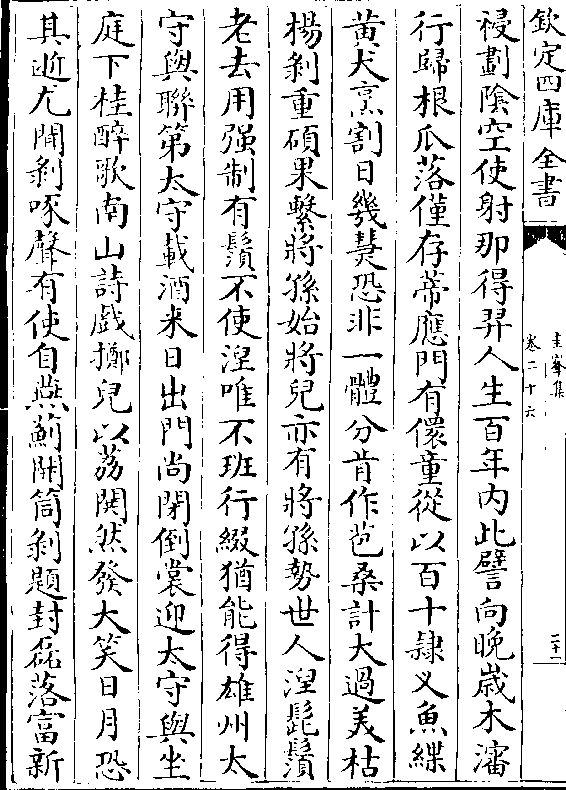 欽定四庫全書
圭峯集
卷二十六
二十一
祲劃陰空使射那得羿人生百年内此譬向晚歲木瀋
行歸根瓜落僅存蒂應門有儇童從以百十隷乂魚緤
黄犬烹割日幾㷄恐非一體分肯作苞桑計大過羙枯
楊剥重碩果繫將孫始將兒亦有將孫勢世人湼髭鬚
老去用强制有鬚不使湼唯不班行綴猶能得雄州太
守與聯第太守載酒来日出門尚閉倒裳迎太守與坐
庭下桂醉歌南山詩戲擲兒以荔閧然發大笑日月恐
其逝尤聞剥啄聲有使自燕薊開筒剥題封磊落富新